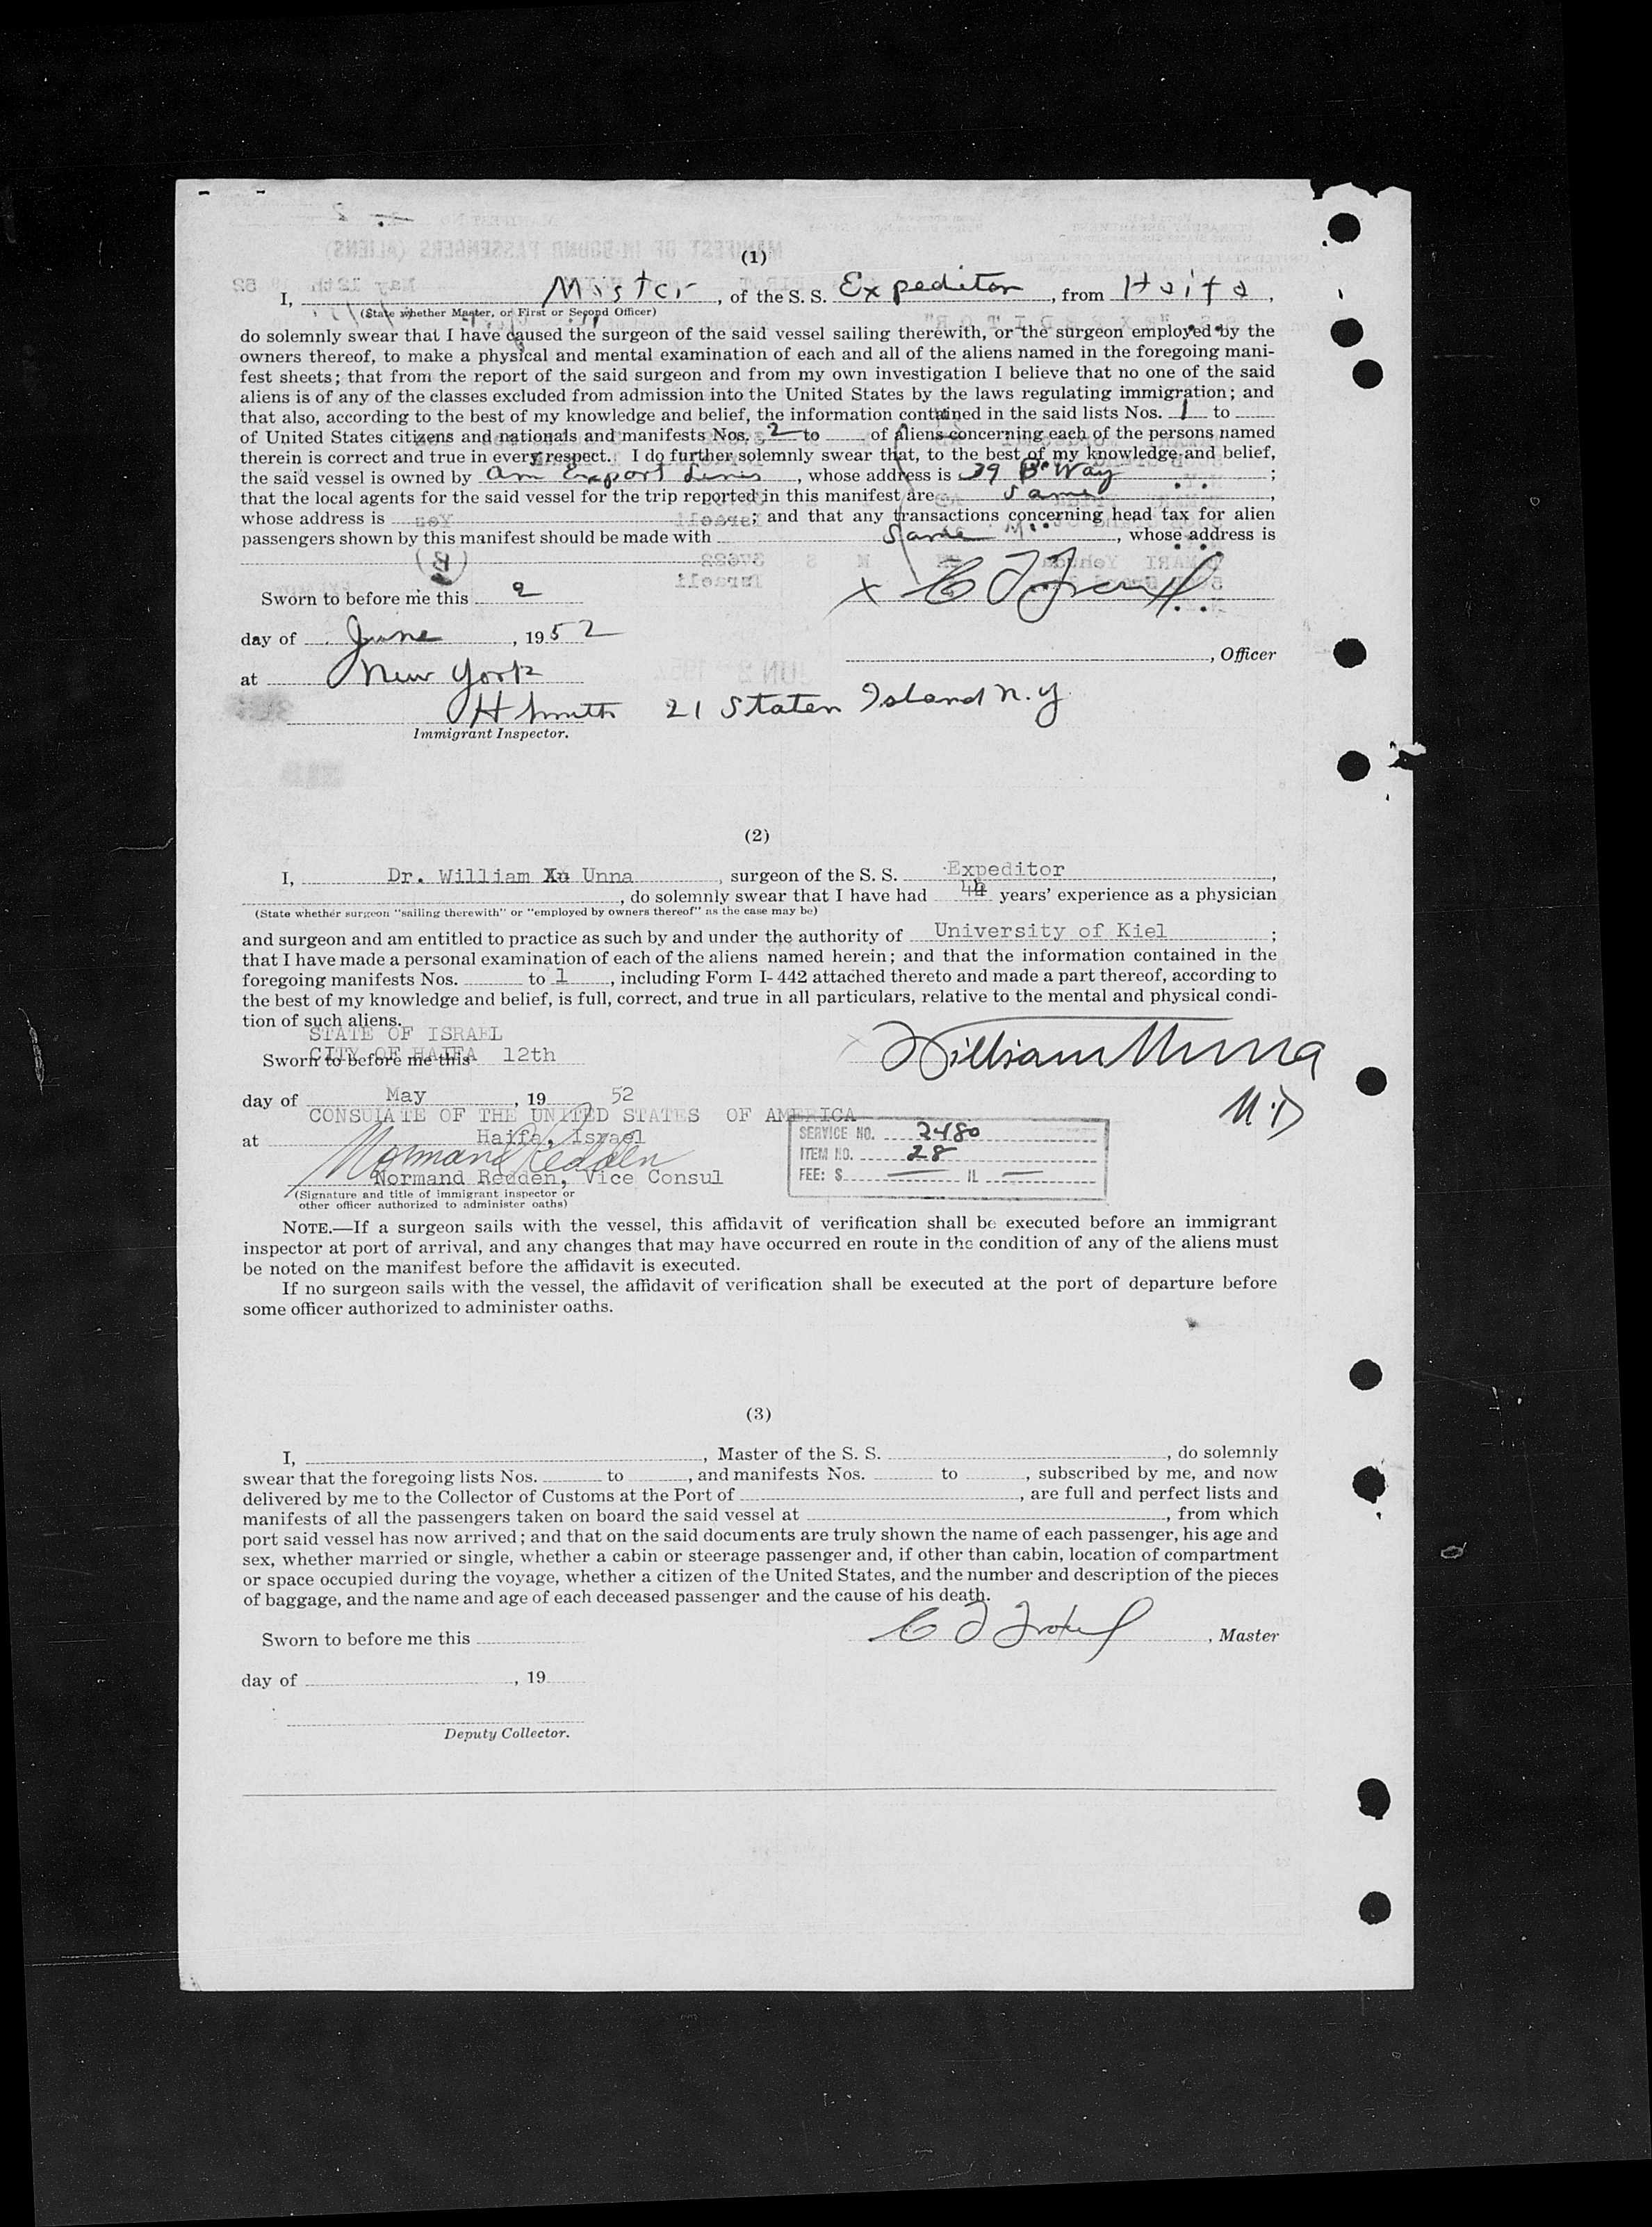 (1)
I, Master, of the S. S. Expeditor, from Haifa,
(State whether Master, or First or Second Officer)
do solemnly swear that I have caused the surgeon of the said vessel sailing therewith, or the surgeon employed by the
owners thereof, to make a physical and mental examination of each and all of the aliens named in the foregoing mani-
fest sheets; that from the report of the said surgeon and from my own investigation I believe that no one of the said
aliens is of any of the classes excluded from admission into the United States by the laws regulating immigration; and
that also, according to the best of my knowledge and belief, the information contained in the said lists Nos. 1 to
of United States citizens and nationals and manifests Nos. 2 to of aliens concerning each of the persons named
therein is correct and true in every respect. I do further solemnly swear that, to the best of my knowledge and belief,
the said vessel is owned by Am Export Lines, whose address is 39 B'Way;
that the local agents for the said vessel for the trip reported in this manifest are same,
whose address is ; and that any transactions concerning head tax for alien
passengers shown by this manifest should be made with Same, whose address is
Sworn to before me this 2
day of June, 1952
, Officer
at New York
H Smith 21 Staten Island N.Y.
Immigrant Inspector.
(2)
I, Dr. William Unna, surgeon of the S. S. Expeditor,
, do solemnly swear that I have had 44 years' experience as a physician
(State whether surgeon "sailing therewith" or "employed by owners thereof" as the case may be)
and surgeon and am entitled to practice as such by and under the authority of University of Kiel;
that I have made a personal examination of each of the aliens named herein; and that the information contained in the
foregoing manifests Nos. to 1, including Form I-442 attached thereto and made a part thereof, according to
the best of my knowledge and belief, is full, correct, and true in all particulars, relative to the mental and physical condi-
tion of such aliens.
STATE OF ISRAEL
CITY OF HAIFA
Sworn to before me this 12th
William Unna
M.D
day of May, 19 52
CONSULATE OF THE UNITED STATES OF AMERICA
at Haifa, Israel
Normand Redden
Normand Redden, Vice Consul
(Signature and title of immigrant inspector or
other officer authorized to administer oaths)
SERVICE NO. 2480
ITEM NO. 28
FEE: $ — IL —
NOTE.—If a surgeon sails with the vessel, this affidavit of verification shall be executed before an immigrant
inspector at port of arrival, and any changes that may have occurred en route in the condition of any of the aliens must
be noted on the manifest before the affidavit is executed.
If no surgeon sails with the vessel, the affidavit of verification shall be executed at the port of departure before
some officer authorized to administer oaths.
(3)
I, , Master of the S. S. , do solemnly
swear that the foregoing lists Nos. to , and manifests Nos. to , subscribed by me, and now
delivered by me to the Collector of Customs at the Port of , are full and perfect lists and
manifests of all the passengers taken on board the said vessel at , from which
port said vessel has now arrived; and that on the said documents are truly shown the name of each passenger, his age and
sex, whether married or single, whether a cabin or steerage passenger and, if other than cabin, location of compartment
or space occupied during the voyage, whether a citizen of the United States, and the number and description of the pieces
of baggage, and the name and age of each deceased passenger and the cause of his death.
Sworn to before me this
, Master
day of , 19
Deputy Collector.